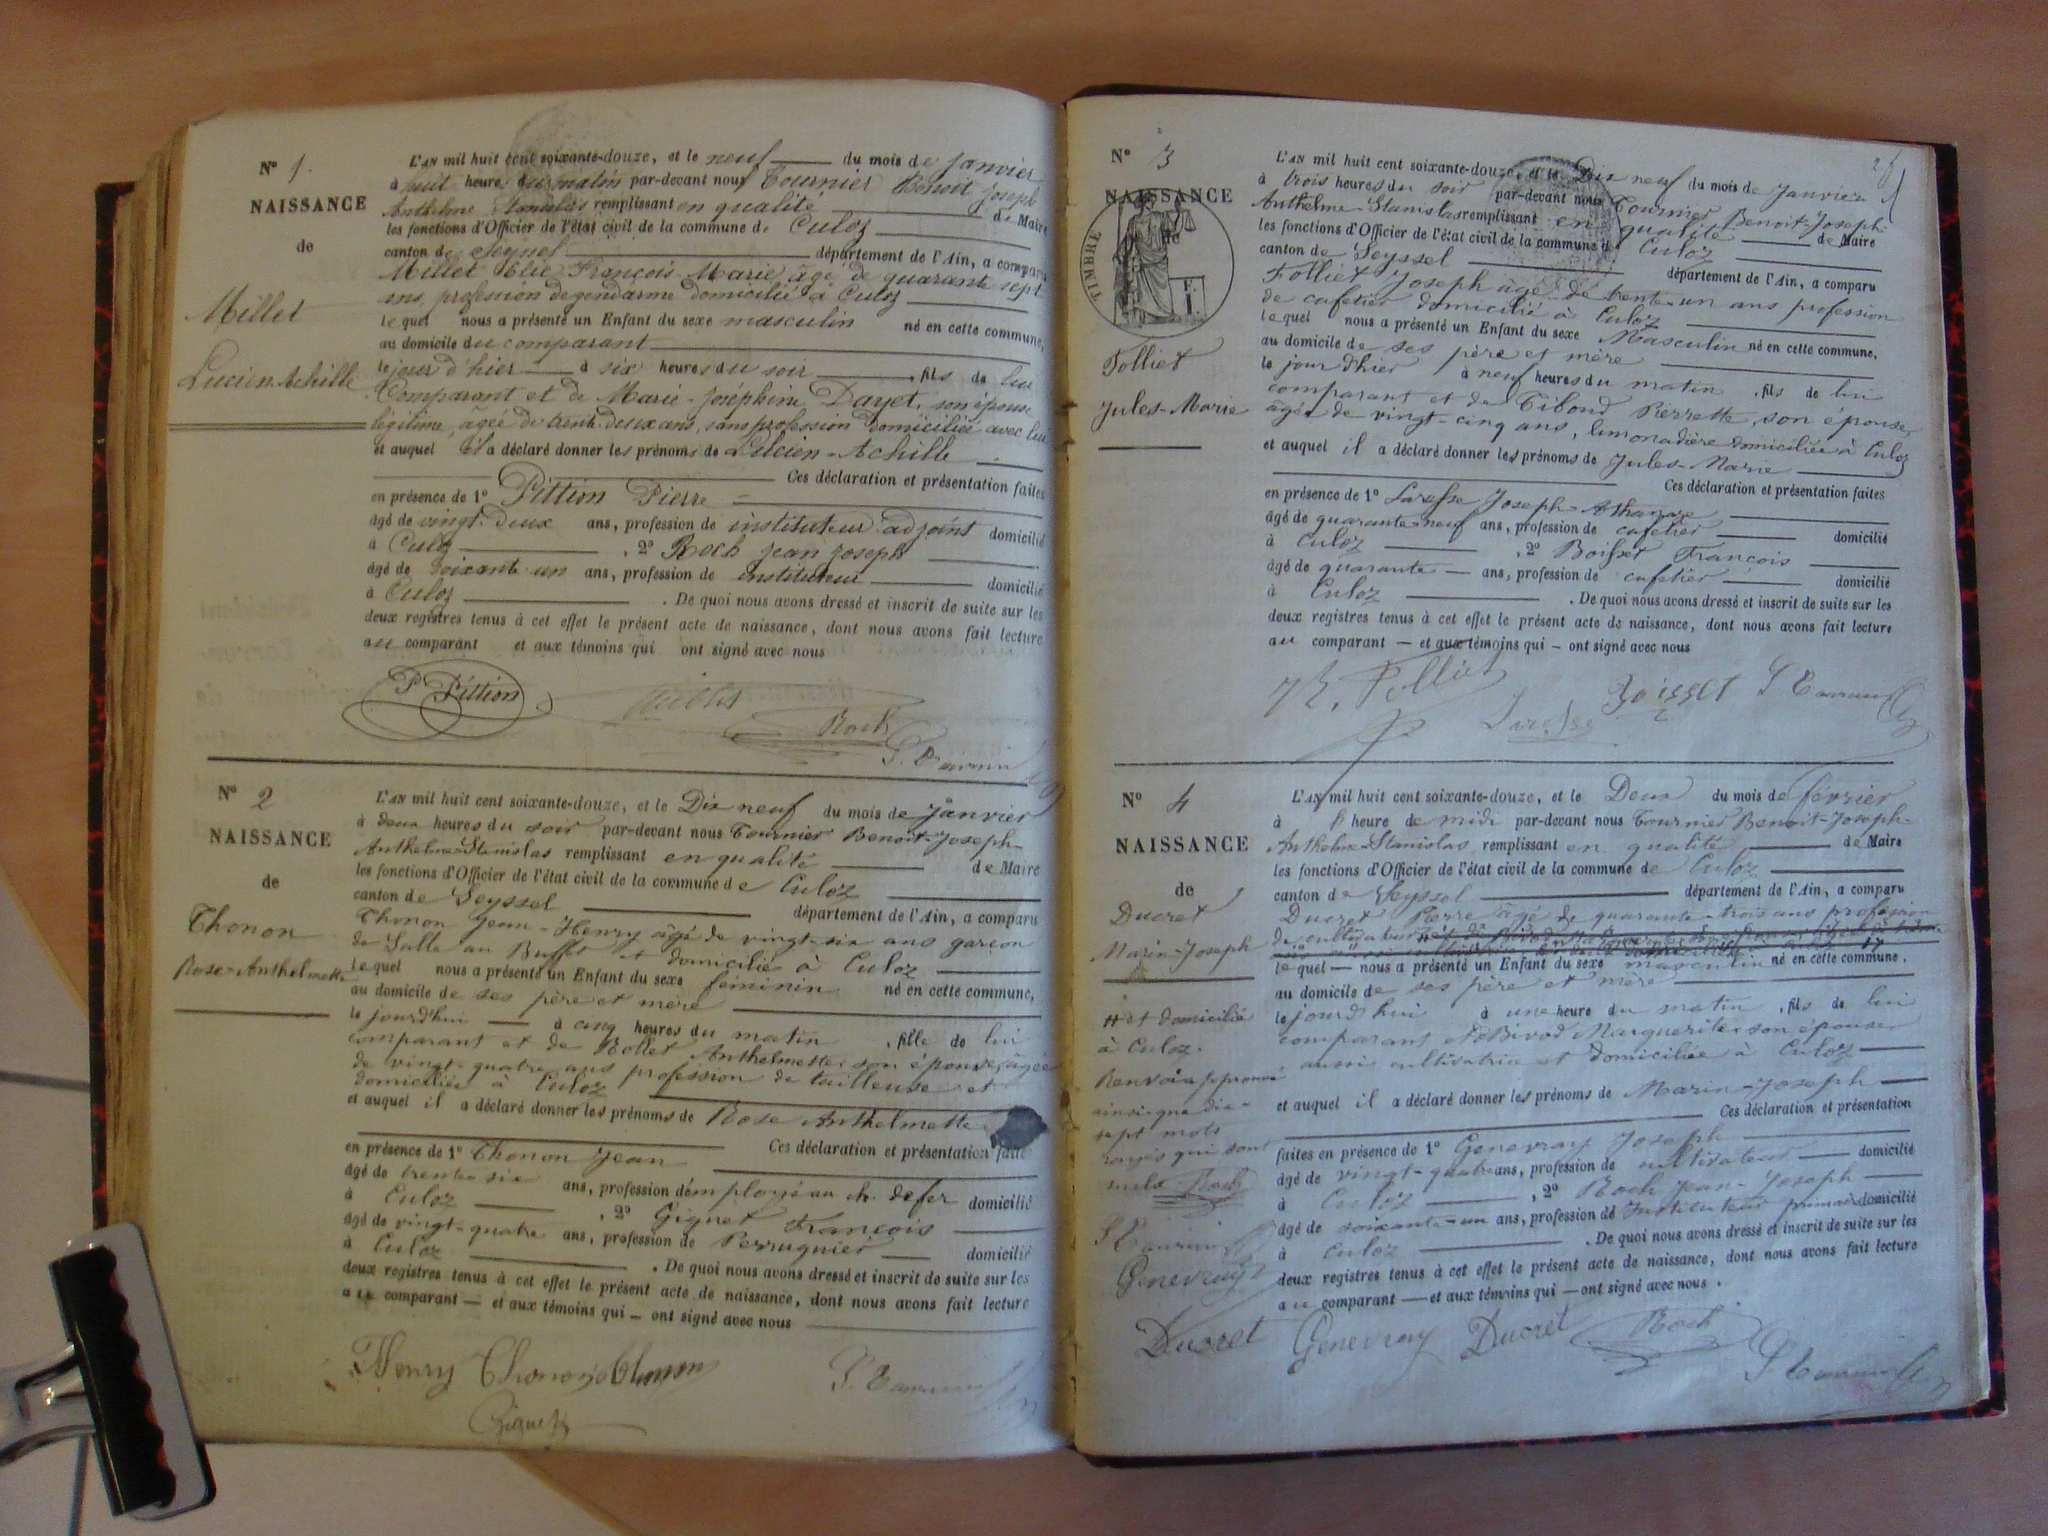 N° 1.
NAISSANCE
de
Millet
Lucien Achille
L'AN mil huit cent soixante-douze, et le neuf du mois de janvier
à huit heures du matin par-devant nous Tournier Benoit Joseph
Anthelme Stanislas remplissant en qualité de Maire
les fonctions d'Officier de l'état civil de la commune de Culoz
canton de Seyssel département de l'Ain, a comparu
Millet Élie François Marie âgé de quarante sept
ans, profession de gendarme domicilié à Culoz
lequel nous a présenté un Enfant du sexe masculin né en cette commune,
au domicile du comparant
le jour d'hier à six heures du soir , fils de lui
Comparant et de Marie-Joséphine Dayet, son épouse
légitime, âgée de trente deux ans, sans profession domiciliée avec lui
et auquel il a déclaré donner les prénoms de Lucien-Achille
Ces déclaration et présentation faites
en présence de 1° Pittion Pierre
âgé de vingt-deux ans, profession de instituteur adjoint domicilié
à Culoz , 2° Roch Jean Joseph
âgé de soixante un ans, profession de instituteur domicilié
à Culoz . De quoi nous avons dressé et inscrit de suite sur les
deux registres tenus à cet effet le présent acte de naissance, dont nous avons fait lecture
au comparant et aux témoins qui ont signé avec nous
P. Pittion
Roch
N° 2
NAISSANCE
de
Thonon
Rose-Anthelmette
L'AN mil huit cent soixante-douze, et le Dix neuf du mois de Janvier
à deux heures du soir par-devant nous Tournier Benoit-Joseph-
Anthelme-Stanislas remplissant en qualité de Maire
les fonctions d'Officier de l'état civil de la commune de Culoz
canton de Seyssel département de l'Ain, a comparu
Thonon Jean-Henry âgé de vingt-six ans garçon
de Salle au Buffet et domicilié à Culoz
lequel nous a présenté un Enfant du sexe féminin né en cette commune,
au domicile de ses père et mère
le jourd'hui à cinq heures du matin , fille de lui
comparant et de Rollet Anthelmette son épouse, âgée
de vingt-quatre ans profession de tailleuse et
domiciliée à Culoz
et auquel il a déclaré donner les prénoms de Rose Anthelmette
Ces déclaration et présentation faites
en présence de 1° Thonon Jean
âgé de trente six ans, profession d'employé au ch. de fer domicilié
à Culoz , 2° Giguet François
âgé de vingt-quatre ans, profession de Perruquier domicilié
à Culoz . De quoi nous avons dressé et inscrit de suite sur les
deux registres tenus à cet effet le présent acte de naissance, dont nous avons fait lecture
au comparant — et aux témoins qui — ont signé avec nous
Henry Thonon Thonon
Giguet
N° 3
NAISSANCE
de
TIMBRE
Folliet
Jules-Marie
L'AN mil huit cent soixante-douze, et le Dix neuf du mois de Janvier
à trois heures du soir par-devant nous Tournier Benoit-Joseph-
Anthelme-Stanislas remplissant en qualité de Maire
les fonctions d'Officier de l'état civil de la commune de Culoz
canton de Seyssel département de l'Ain, a comparu
Folliet Joseph âgé de trente-un ans profession
de cafetier domicilié à Culoz
lequel nous a présenté un Enfant du sexe Masculin né en cette commune,
au domicile de ses père et mère
le jour d'hier à neuf heures du matin , fils de lui
comparant et de Tibond Pierrette, son épouse,
âgée de vingt-cinq ans, limonadière domiciliée à Culoz
et auquel il a déclaré donner les prénoms de Jules-Marie
Ces déclaration et présentation faites
en présence de 1° Laresse Joseph-Athanase
âgé de quarante-neuf ans, profession de cafetier domicilié
à Culoz , 2° Boisset François
âgé de quarante — ans, profession de cafetier domicilié
à Culoz . De quoi nous avons dressé et inscrit de suite sur les
deux registres tenus à cet effet le présent acte de naissance, dont nous avons fait lecture
au comparant — et aux témoins qui — ont signé avec nous
Folliet Laresse Boisset
N° 4
NAISSANCE
de
Ducret
Marin-Joseph
# et domicilié
à Culoz.
Renvoi approuvé
ainsi que dix-
sept mots
rayés qui sont
nuls Roch
Genevray
Ducret
L'AN mil huit cent soixante-douze, et le Deux du mois de février
à heure de midi par-devant nous Tournier Benoit-Joseph-
Anthelme-Stanislas remplissant en qualité de Maire
les fonctions d'Officier de l'état civil de la commune de Culoz
canton de Seyssel département de l'Ain, a comparu
Ducret Pierre âgé de quarante-trois ans profession
de cultivateur #
lequel — nous a présenté un Enfant du sexe masculin né en cette commune.
au domicile de ses père et mère
le jourd'hui à une heure du matin , fils de lui
comparant et Bivod Marguerite, son épouse
aussi cultivatrice et domiciliée à Culoz
et auquel il a déclaré donner les prénoms de Marin-Joseph
Ces déclaration et présentation
faites en présence de 1° Genevray Joseph
âgé de vingt-quatre ans, profession de cultivateur domicilié
à Culoz , 2° Roch Jean-Joseph
âgé de soixante-un ans, profession de Instituteur primaire domicilié
à Culoz . De quoi nous avons dressé et inscrit de suite sur les
deux registres tenus à cet effet le présent acte de naissance, dont nous avons fait lecture
au comparant — et aux témoins qui — ont signé avec nous.
Genevray Ducret Roch